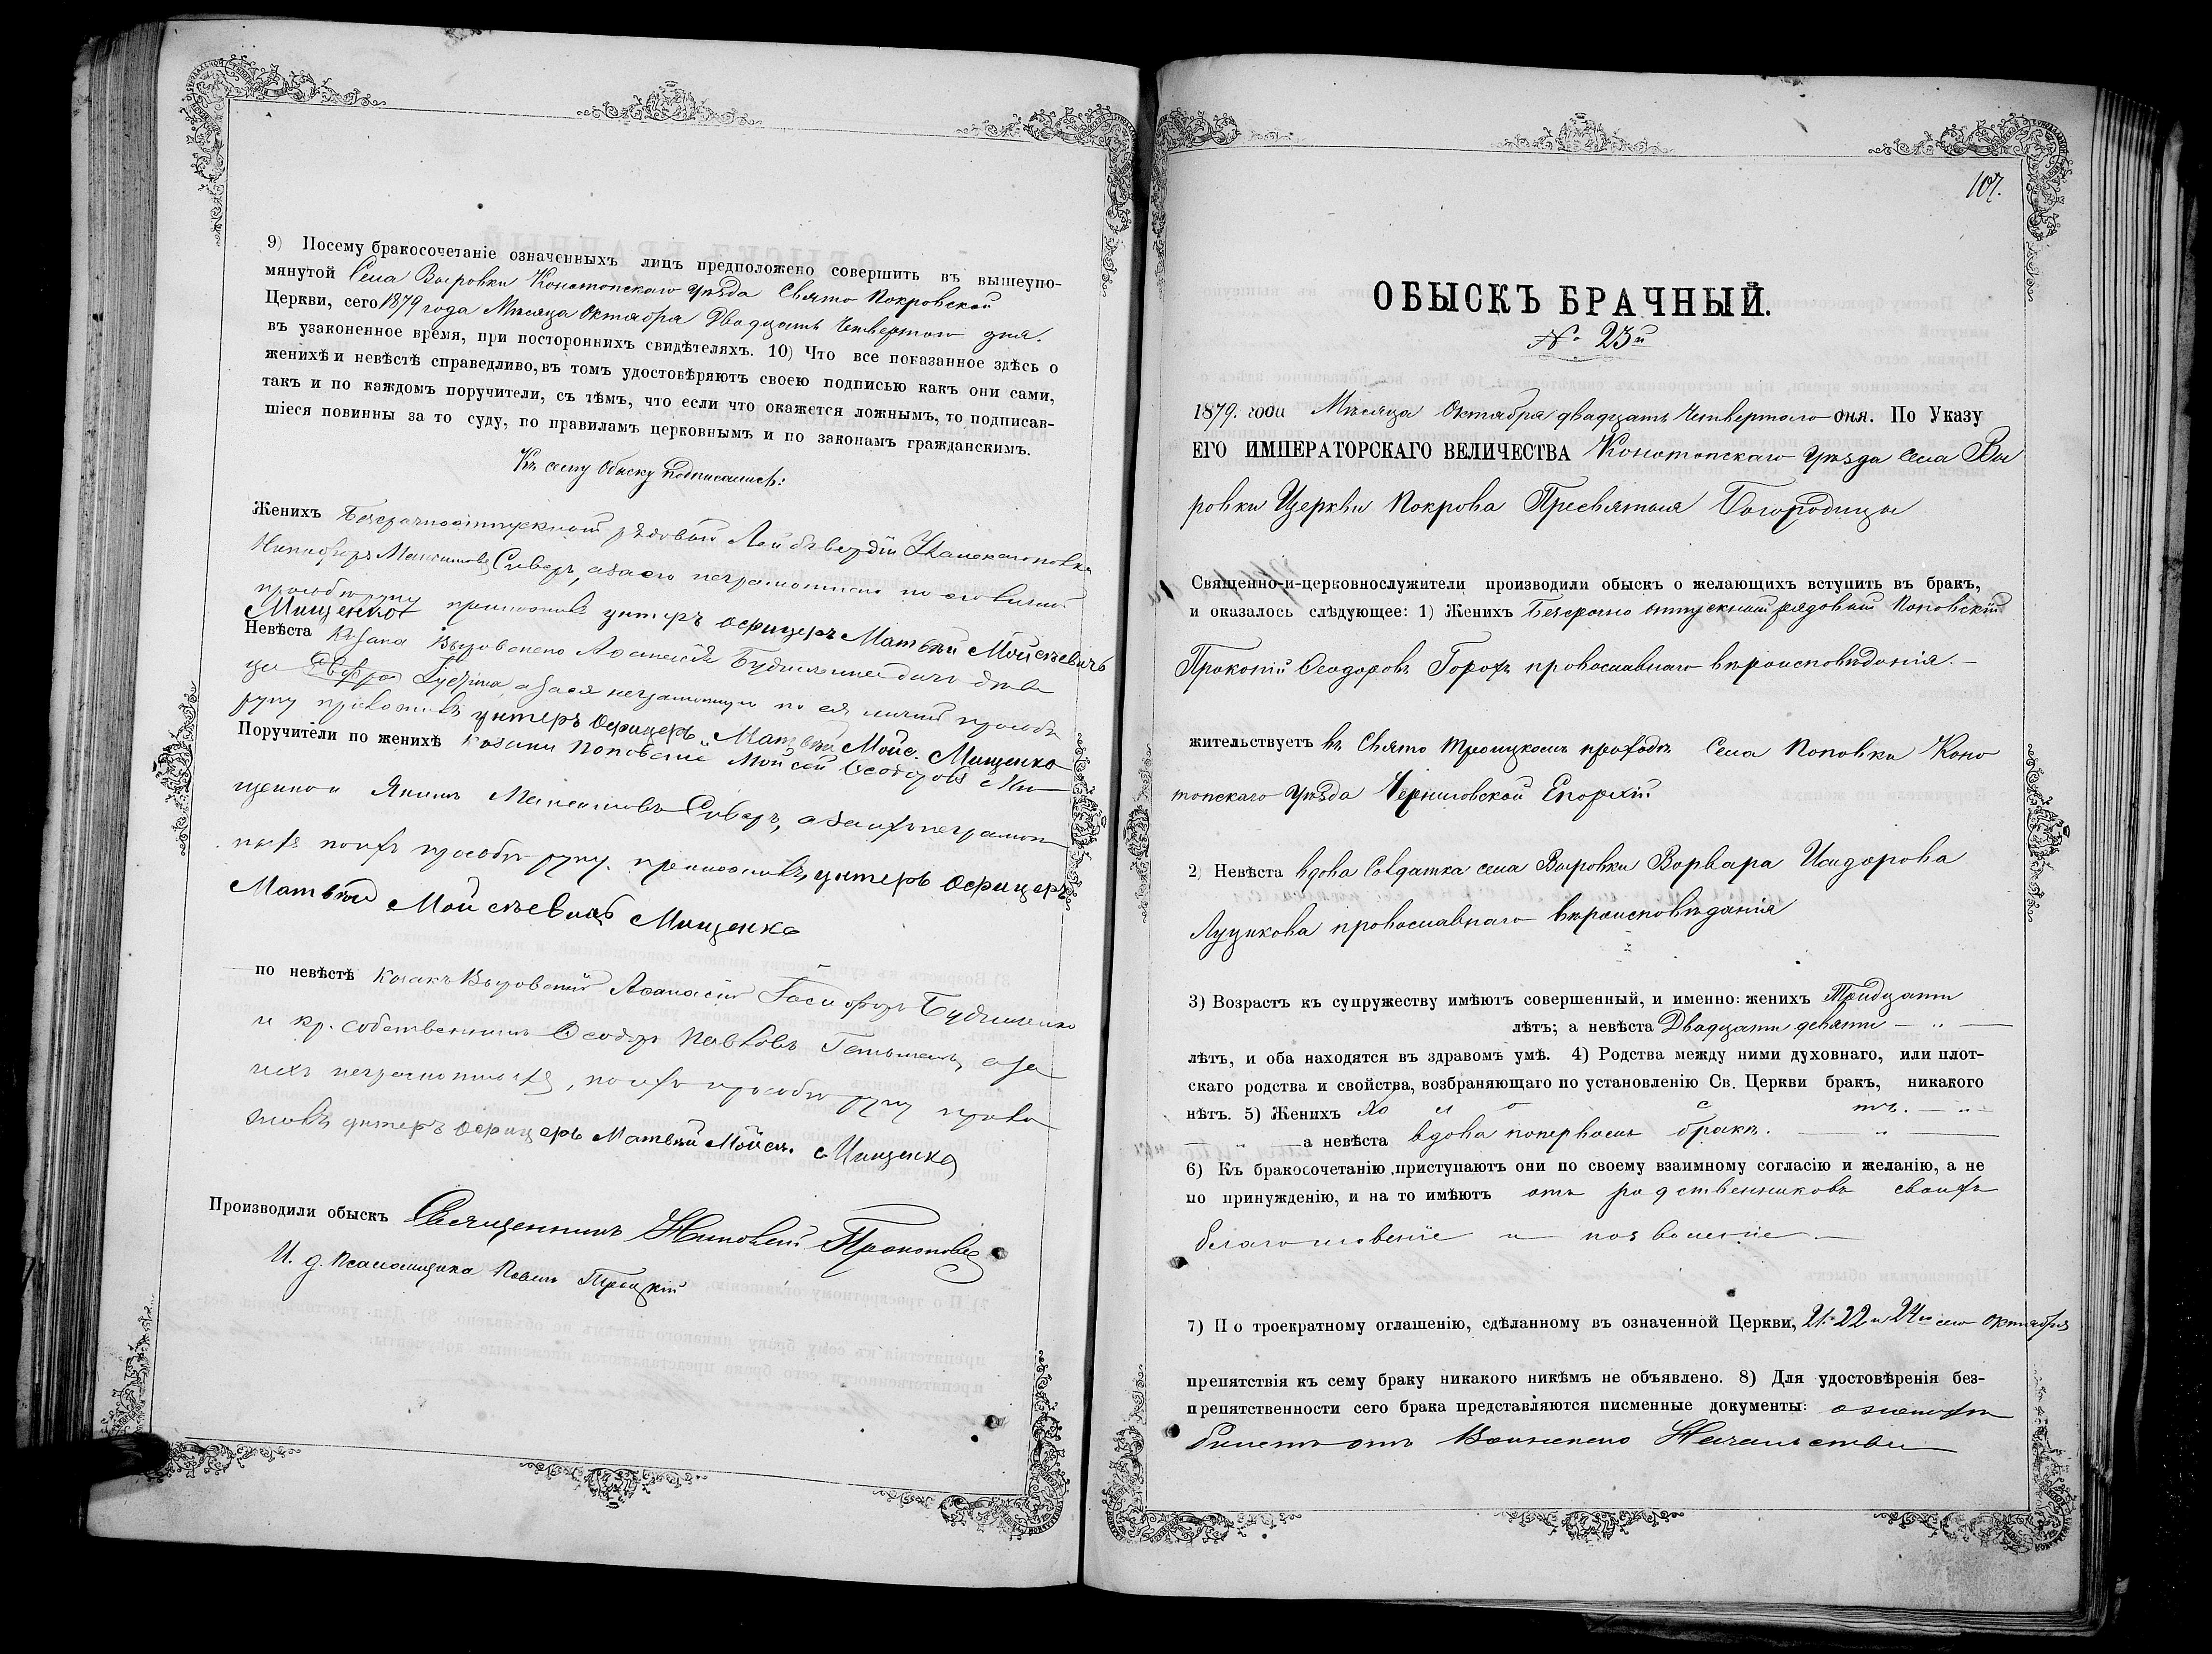 9) Посему бракосочетаніе означенныхъ лицъ предположено совершить въ вышеупо-
мянутой Села Выровки Конотопскаго Уѣзда Свято Покровской
Церкви, сего 1879 года Мѣсяца Октября Двадцать Четвертого дня.
въ узаконенное время, при постороннихъ свидѣтеляхъ. 10) Что все показанное здѣсь о
женихѣ и невѣстѣ справедливо, въ томъ удостовѣряютъ своею подписью какъ они сами,
такъ и по каждомъ поручители, съ тѣмъ, что если что окажется ложнымъ, то подписав-
шіеся повинны за то суду, по правиламъ церковнымъ и по законамъ гражданскимъ.
Къ сему Обыску подписались:
Женихъ рядовый
Никифоръ Максимовъ Сиверъ, а за его неграмотного по его личной
прозбѣ руку приложилъ унтеръ Офицеръ Матвѣй Мойсѣевичъ
Мищенко
Невѣста Козака Выровскаго дочь
а за ея неграмотную по ея личной прозбѣ
руку приложилъ унтеръ Офицеръ Матвѣй Мойс. Мищенко
Поручители по женихѣ Козаки Поповскіе Мойсей Ѳеодоровъ Ми
щенко и Якимъ Максимовъ Сиверъ, а за ихъ неграмот
ныхъ по ихъ прозбѣ руку приложилъ унтеръ Офицеръ
Матвѣй Мойсѣевичъ Мищенко
по невѣстѣ Козакъ Выровскій Аѳанасій
и кр. собственникъ Ѳеодоръ Павловъ а за
ихъ неграмотныхъ, по ихъ прозбѣ руку прило
жилъ унтеръ Офицеръ Матвѣй Мойсѣ. Мищенко
Производили обыскъ Священникъ
И. д. Псаломщика Павелъ Троицкій
107.
ОБЫСКЪ БРАЧНЫЙ.
№ 23й
1879. года Мѣсяца Октября двадцать Четвертого дня. По Указу
ЕГО ИМПЕРАТОРСКАГО ВЕЛИЧЕСТВА Конотопскаго Уѣзда села Вы
ровки Церкви Покрова Пресвятыя Богородицы
Священно-и-церковнослужители производили обыскъ о желающихъ вступить въ бракъ,
и оказалось слѣдующее: 1) Женихъ Безсрочно отпускный рядовый Поповскій
Прокопій Ѳеодоровъ Горохъ православнаго вѣроисповѣданія. —
жительствуетъ въ Свято Троицкомъ приходѣ Села Поповки Коно
топскаго Уѣзда Черниговской Епархіи
2) Невѣста вдова Солдатка села Выровки Варвара Исидорова
Луцикова православнаго вѣроисповѣданія
3) Возрастъ къ супружеству имѣютъ совершенный, и именно: женихъ Тридцати
лѣтъ; а невѣста Двадцати девяти
лѣтъ, и оба находятся въ здравомъ умѣ. 4) Родства между ними духовнаго, или плот-
скаго родства и свойства, возбраняющаго по установленію Св. Церкви бракъ, никакого
нѣтъ. 5) Женихъ хо л о с тъ. —
а невѣста вдова по первомъ бракѣ.
6) Къ бракосочетанію приступаютъ они по своему взаимному согласію и желанію, а не
по принужденію, и на то имѣютъ отъ родственниковъ своихъ
благословеніе и позволеніе —
7) По троекратному оглашенію, сдѣланному въ означенной Церкви, 21. 22 и 24го сего Октября
препятствія къ сему браку никакого никѣмъ не объявлено. 8) Для удостовѣренія без-
препятственности сего брака представляются писменные документы: о женихѣ
билетъ отъ Воинскаго Начальства